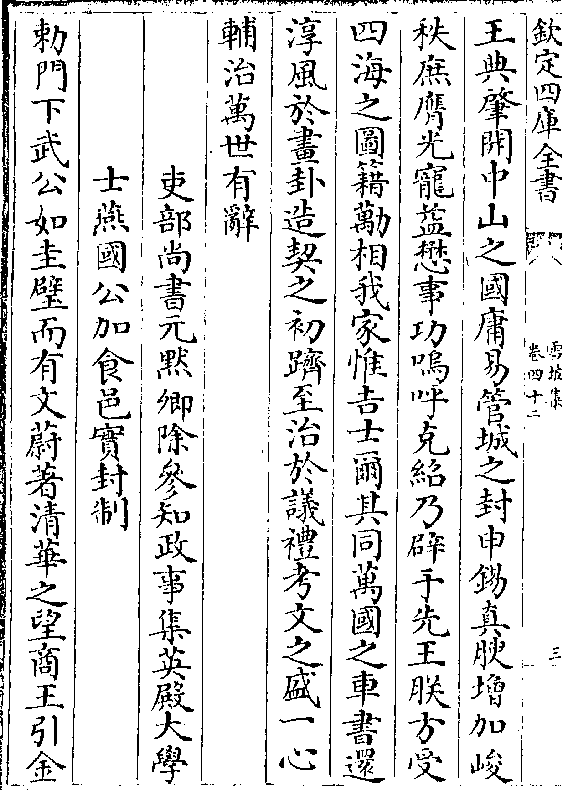 欽定四庫全書
雪坡集
卷四十二
三
王典肇開中山之國庸易管城之封申錫真腴增加峻
秩庶膺光寵益懋事功嗚呼克紹乃辟于先王朕方受
四海之圖籍勱相我家惟吉士爾其同萬國之車書還
淳風於畫卦造契之初躋至治於議禮考文之盛一心
輔治萬世有辭
吏部尚書元黙卿除參知政事集英殿大學
士燕國公加食邑實封制
勅門下武公如圭璧而有文蔚著清華之望商王引金